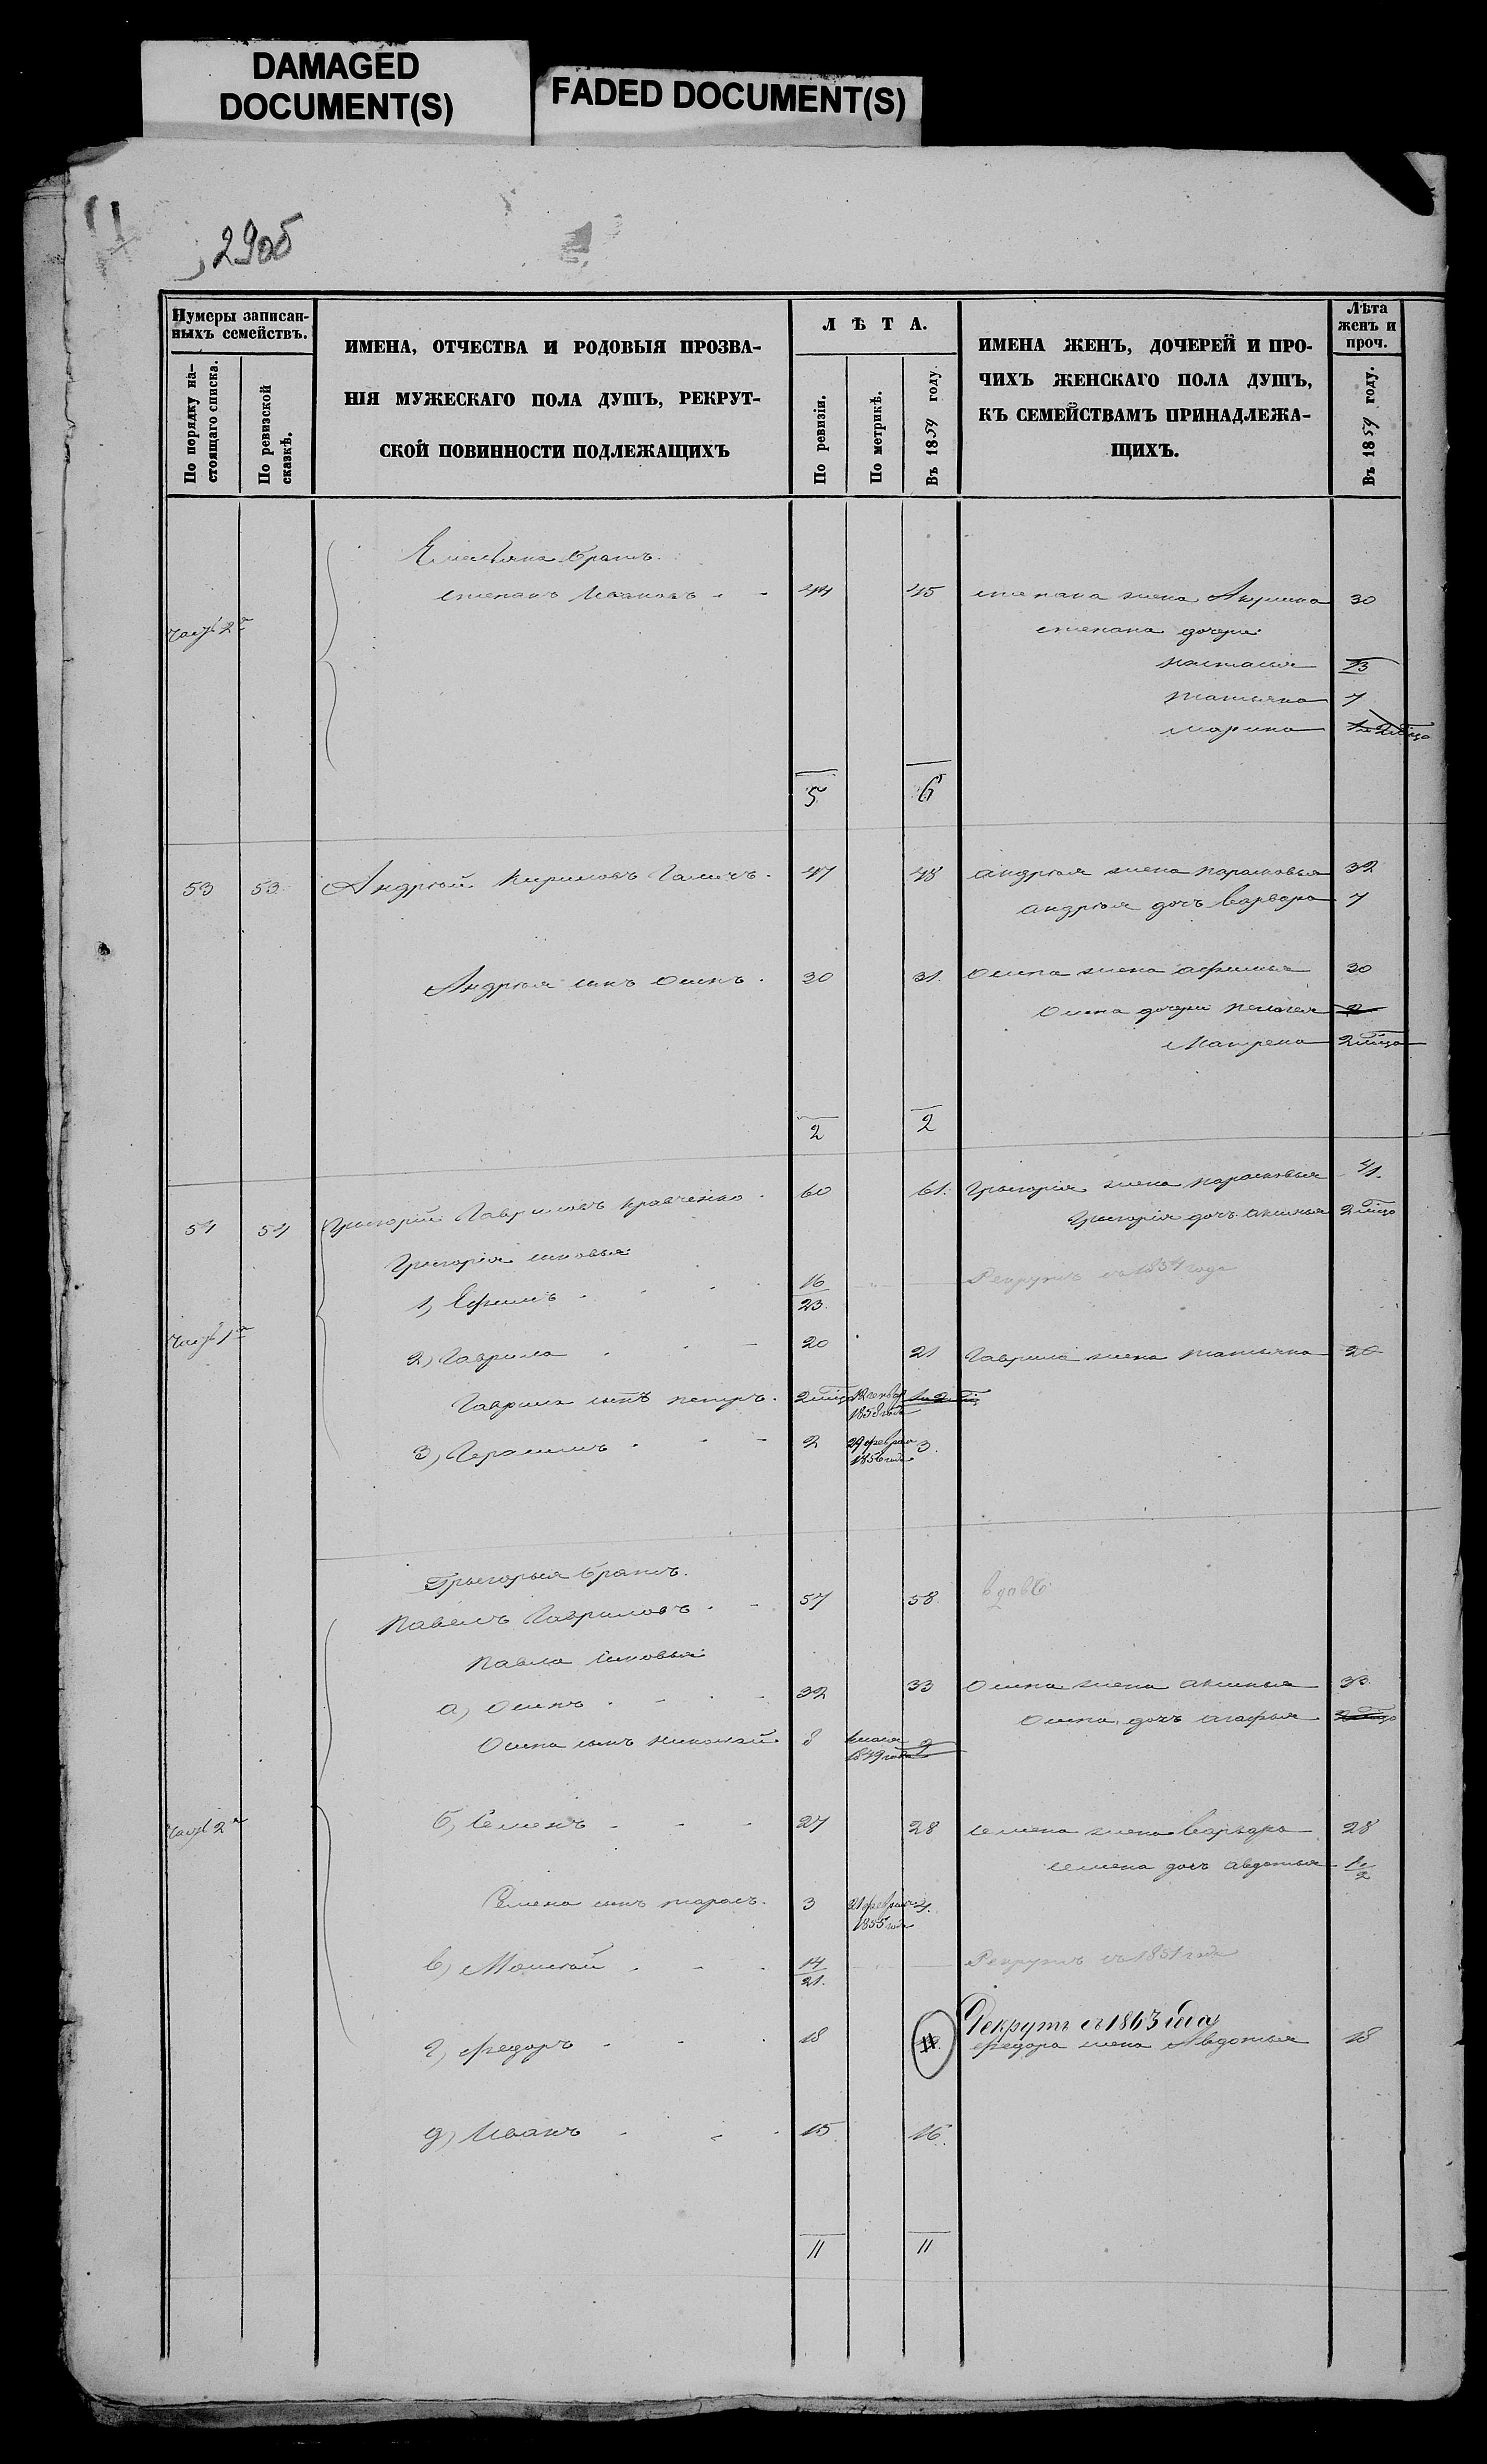 DAMAGED
DOCUMENT(S)
FADED DOCUMENT(S)
2905
Нумеры записан-
ныхъ семействъ.
По порядку на-
стоящаго списка.
По ревизской
сказкѣ.
ИМЕНА, ОТЧЕСТВА И РОДОВЫЯ ПРОЗВА-
НІЯ МУЖЕСКАГО ПОЛА ДУШЪ, РЕКРУТ-
СКОЙ ПОВИННОСТИ ПОДЛЕЖАЩИХЪ
ЛѢТА.
По ревизіи.
По метрикѣ.
Въ 1859 году.
ИМЕНА ЖЕНЪ, ДОЧЕРЕЙ И ПРО-
ЧИХЪ ЖЕНСКАГО ПОЛА ДУШЪ,
КЪ СЕМЕЙСТВАМЪ ПРИНАДЛЕЖА-
ЩИХЪ.
Лѣта
женъ и
проч.
Въ 1859 году.
Емельяна братъ
степанъ Ивановъ 44 45 степана жена Акулина 30
Часть 2я степана дочери
настасия 13
татьяна 7
марина
5 6
53 53 Андрюй Кириловъ Галичъ 47 48 андрюя жена парасковья 32
андрюя дочь варвара 7
Андрюя сынъ осипъ 30 31 осипа жена афимья 30
осипа дочери пелагея 2
Матрена 2 мѣца
2 2
54 54 Григорий Гавриловъ кравченко 60 61 Григорія жена парасковья 41
Григорія дочь аксинья 2 мѣца
Григорія сыновья
1) Ефимъ 16/23 Рекрутъ съ 1854 года
Часть 1я
2) Гаврила 20 21 Гаврила жена татьяна 20
Гаврила сынъ петръ 2 мѣца 1858 года
3) Герасимъ 2 29 феврал 1856 года 3
Григорья братъ
Павелъ Гавриловъ 57 58 вдовъ
павла сыновья
а) осипъ 32 33 осипа жена аксинья 33
осипа дочь агафья
осипа сынъ николай 8 1849 года 9
Часть 2я
б) Семенъ 27 28 семена жена варвара 28
семена дочь авдотья 1/2
Семена сынъ тарасъ 3 21 феврал 1855 года 4
в) Моисюй 14/21 Рекрутъ съ 1851 года
Рекрутъ съ 1863 года
г) федоръ 18 федора жена Авдотья 18
д) Иванъ 15 16
11 11